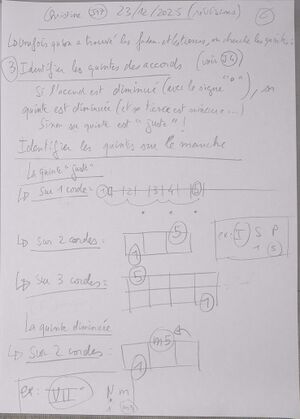 Christine (547) 23/12/2025 (révisions) (5)
↳ Une fois qu'on a trouvé les fonda. et les tierces, on cherche les quintes :
(3) Identifier les quintes des accords (voir J6)
Si l'accord est diminué (avec le signe "°"), sa
quinte est diminuée (et sa tierce est mineure...)
Sinon sa quinte est "juste" !
Identifier les quintes sur le manche
La quinte "juste"
↳ Sur 1 corde : 1 2 3 4
↳ Sur 2 cordes : 5 1
ex : I S P
1 5
↳ Sur 3 cordes : 5 1
La quinte diminuée
↳ Sur 2 cordes : m5 1
ex : VII N m
1